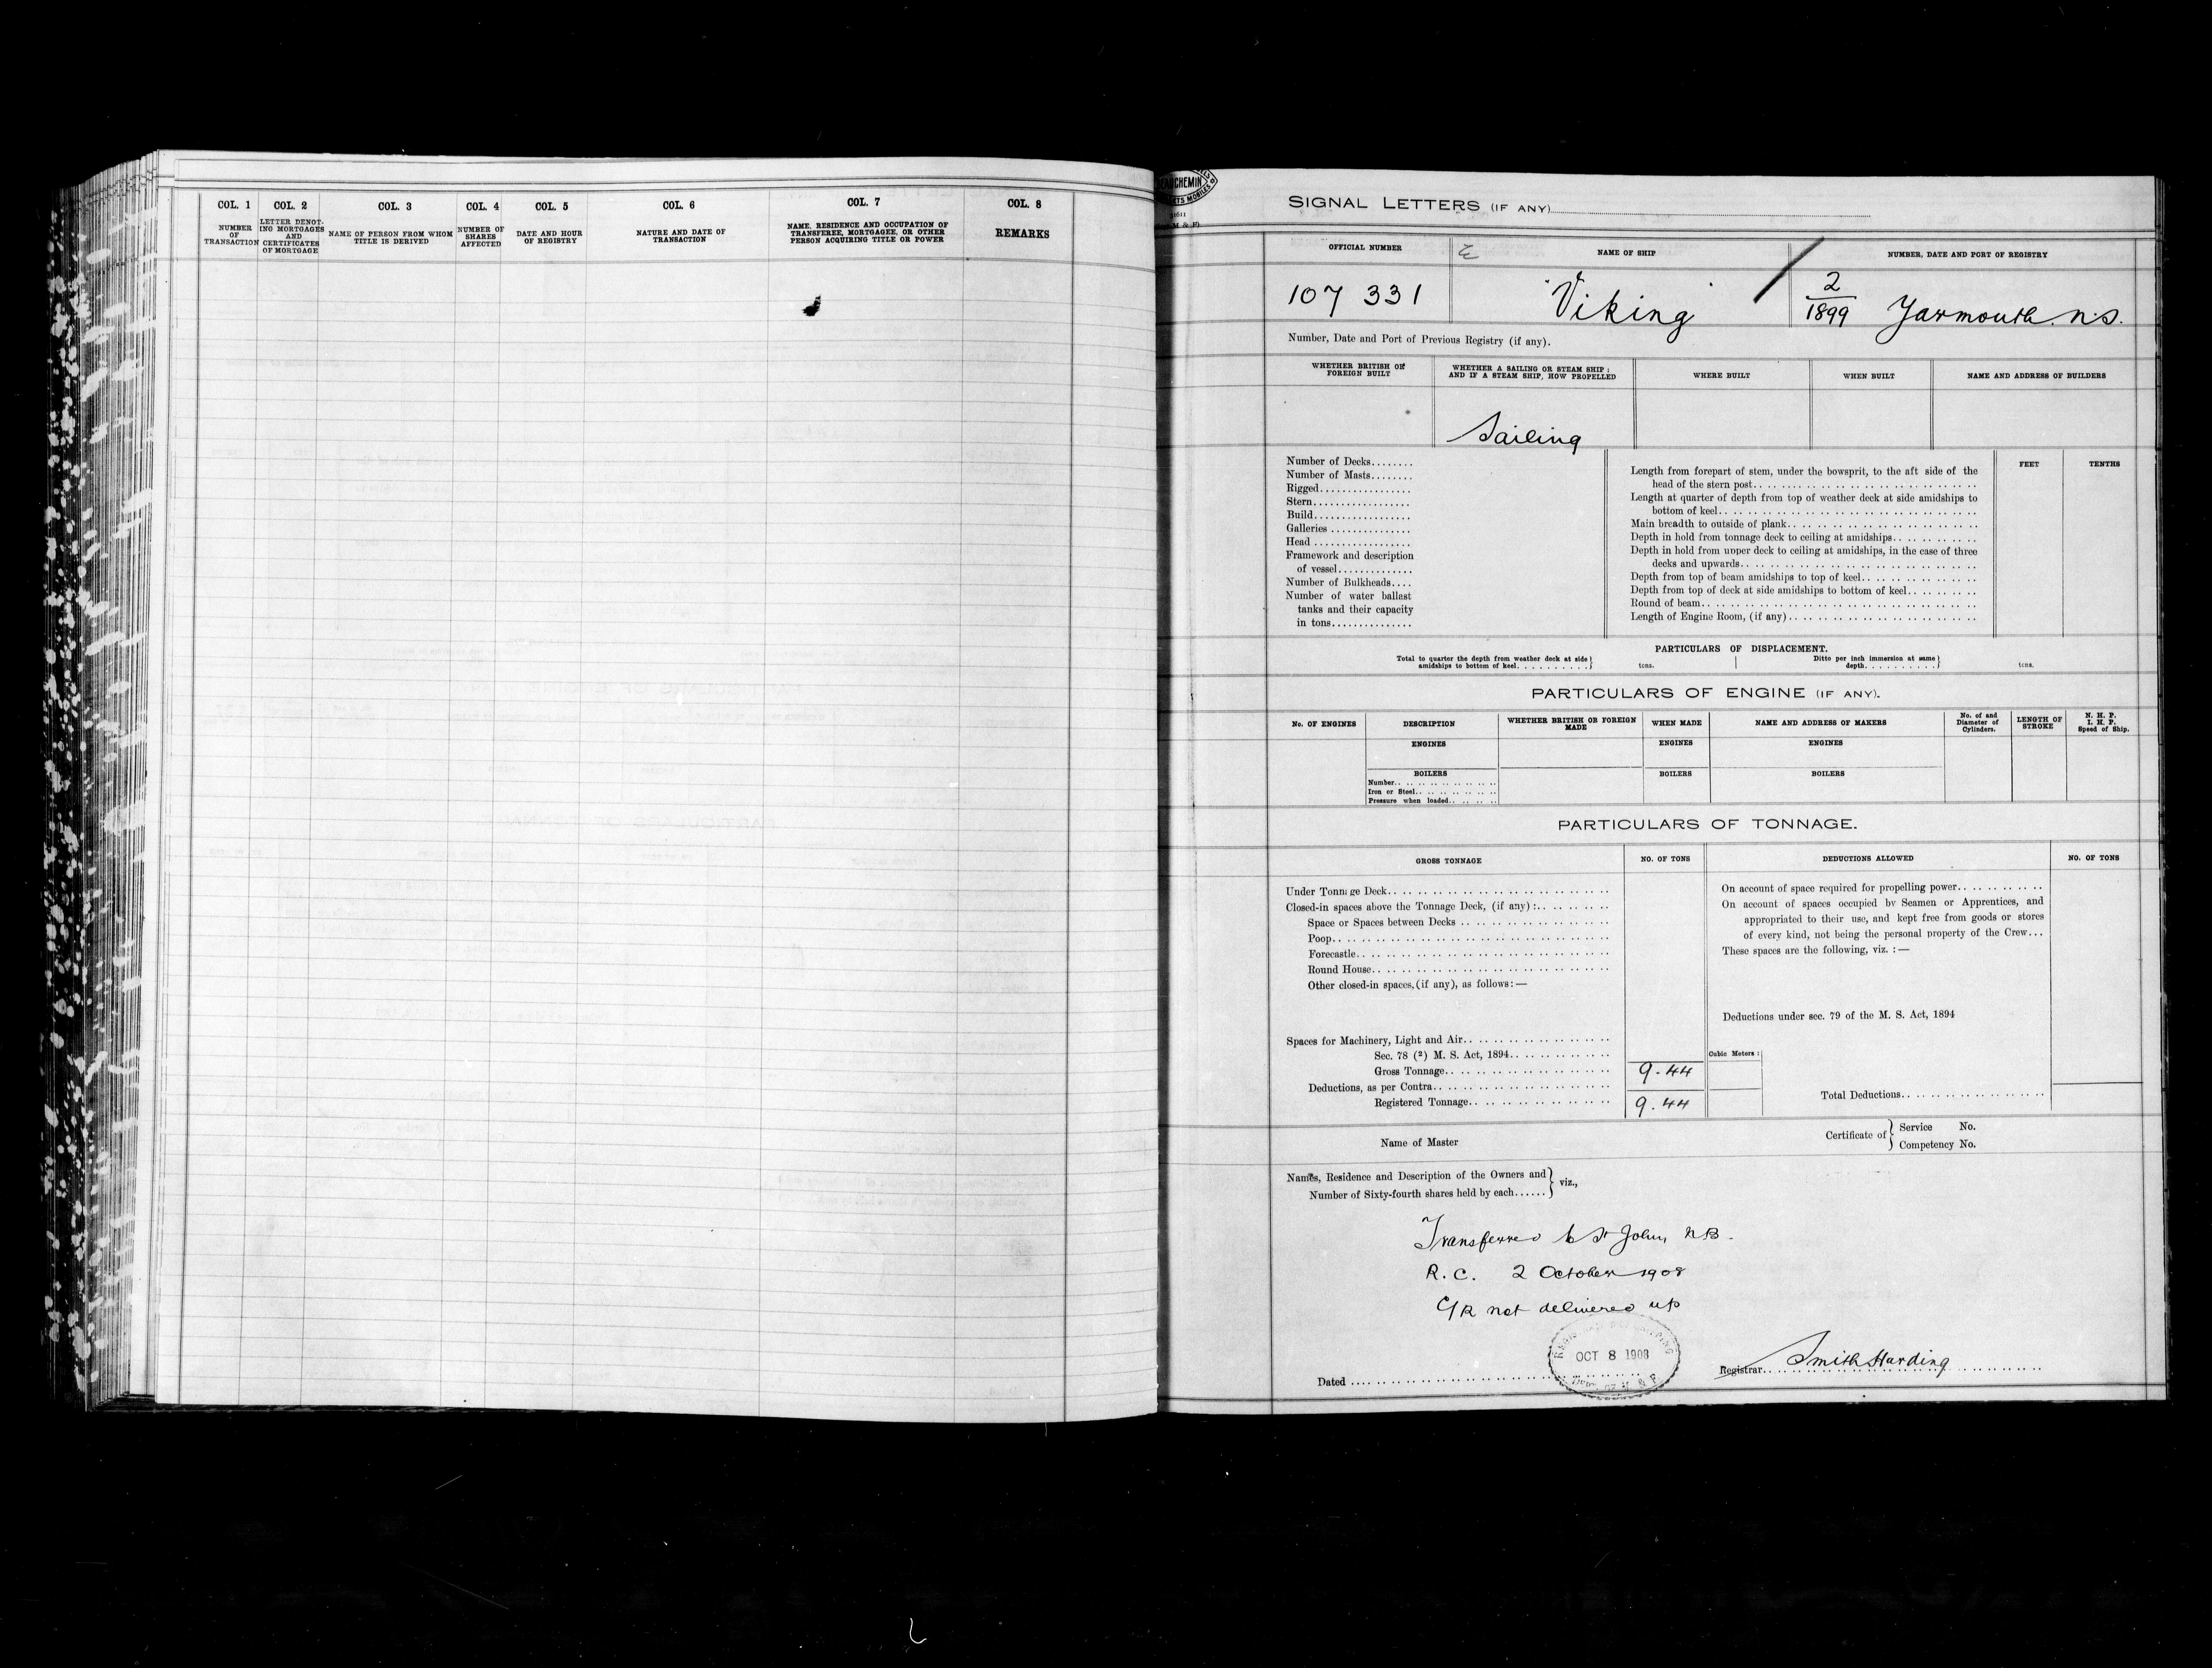 COL. 1
NUMBER
OF
TRANSACTION
COL. 2
LETTER DENOT-
ING MORTGAGES
AND
CERTIFICATES
OF MORTGAGE
COL. 3
NAME OF PERSON FROM WHOM
TITLE IS DERIVED
COL. 4
NUMBER OF
SHARES
AFFECTED
COL. 5
DATE AND HOUR
OF REGISTRY
COL. 6
NATURE AND DATE OF
TRANSACTION
COL. 7
NAME, RESIDENCE AND OCCUPATION OF
TRANSFEREE, MORTGAGEE, OR OTHER
PERSON ACQUIRING TITLE OR POWER
COL. 8
REMARKS
SIGNAL LETTERS (IF ANY)
OFFICIAL NUMBER
107 331
NAME OF SHIP
"Viking"
NUMBER, DATE AND PORT OF REGISTRY
2
1899 Yarmouth. N.S.
Number, Date and Port of Previous Registry (if any).
WHETHER BRITISH OR
FOREIGN BUILT
WHETHER A SAILING OR STEAM SHIP;
AND IF A STEAM SHIP, HOW PROPELLED
Sailing
WHERE BUILT
WHEN BUILT
NAME AND ADDRESS OF BUILDERS
Number of Decks........
Number of Masts........
Rigged.................
Stern..................
Build..................
Galleries ...............
Head ..................
Framework and description
of vessel..............
Number of Bulkheads....
Number of water ballast
tanks and their capacity
in tons...............
FEET
TENTHS
Length from forepart of stem, under the bowsprit, to the aft side of the
head of the stern post..
Length at quarter of depth from top of weather deck at side amidships to
bottom of keel..
Main breadth to outside of plank..
Depth in hold from tonnage deck to ceiling at amidships..
Depth in hold from upper deck to ceiling at amidships, in the case of three
decks and upwards..
Depth from top of beam amidships to top of keel..
Depth from top of deck at side amidships to bottom of keel..
Round of beam..
Length of Engine Room, (if any)..
PARTICULARS OF DISPLACEMENT.
Total to quarter the depth from weather deck at side
amidships to bottom of keel.......... tons.
Ditto per inch immersion at same
depth.......... tons.
PARTICULARS OF ENGINE (IF ANY).
No. OF ENGINES
DESCRIPTION
ENGINES
BOILERS
Number..
Iron or Steel..
Pressure when loaded..
WHETHER BRITISH OR FOREIGN
MADE
WHEN MADE
ENGINES
BOILERS
NAME AND ADDRESS OF MAKERS
ENGINES
BOILERS
No. of and
Diameter of
Cylinders.
LENGTH OF
STROKE
N. H. P.
I. H. P.
Speed of Ship.
PARTICULARS OF TONNAGE.
GROSS TONNAGE
NO. OF TONS
Under Tonnage Deck..
Closed-in spaces above the Tonnage Deck, (if any):..
Space or Spaces between Decks ..
Poop..
Forecastle..
Round House..
Other closed-in spaces, (if any), as follows:—
Spaces for Machinery, Light and Air..
Sec. 78 (2) M. S. Act, 1894..
Gross Tonnage.. 9.44
Deductions, as per Contra..
Registered Tonnage.. 9.44
Cubic Metors:
DEDUCTIONS ALLOWED
NO. OF TONS
On account of space required for propelling power..
On account of spaces occupied by Seamen or Apprentices, and
appropriated to their use, and kept free from goods or stores
of every kind, not being the personal property of the Crew...
These spaces are the following, viz.:—
Deductions under sec. 79 of the M. S. Act, 1894
Total Deductions..
Name of Master
Certificate of
Service No.
Competency No.
Names, Residence and Description of the Owners and
Number of Sixty-fourth shares held by each...... viz.,
Transferred to St John, N.B.
R.C. 2 October 1908
C/R not delivered up
OCT 8 1908
Dated
Registrar. Smith Harding